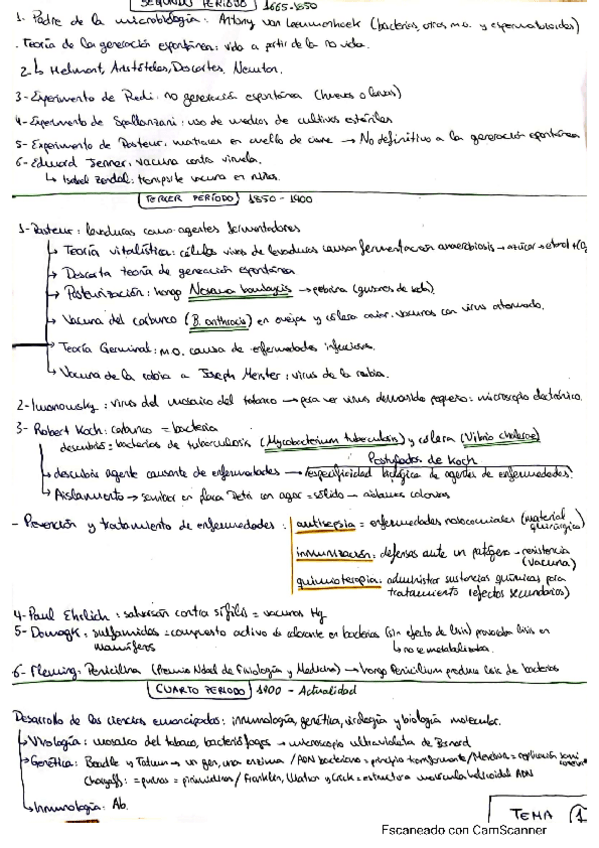 SEGUNDO PERÍODO 1665-1850
1. Padre de la microbiología: Antony van Leeuwenhoek (bacterias, otros m.o. y espermatozoides)
. Teoría de la generación espontánea: vida a partir de la no vida.
2 ↳ Helmont, Aristóteles, Descartes, Newton.
3- Experimento de Redi: no generación espontánea (huevos o larvas)
4- Experimento de Spallanzani: uso de medios de cultivos estériles
5- Experimento de Pasteur: matraces en cuello de cisne → No definitivo a la generación espontánea
6- Edward Jenner: vacuna contra viruela.
↳ Isabel Zendal: transporte vacuna en niños.
TERCER PERÍODO 1850 - 1900
1- Pasteur: levaduras como agentes fermentadores
↳ Teoría vitalística: células vivas de levaduras causan fermentación anaerobiosis → azúcar → etanol + CO₂
↳ Descarta teoría de generación espontánea
↳ Pasteurización: hongo Nosema bombycis → pebrina (gusanos de seda).
↳ Vacuna del carbunco (B. anthracis) en ovejas y cólera aviar. vacunas con virus atenuado.
↳ Teoría Germinal: m.o. causa de enfermedades infecciosas.
↳ Vacuna de la rabia a Joseph Meister: virus de la rabia.
2- Iwanowsky: virus del mosaico del tabaco → para ver virus demasiado pequeño: microscopio electrónico.
3- Robert Koch: carbunco = bacteria
descubrió: bacterias de tuberculosis (Mycobacterium tuberculosis) y cólera (Vibrio cholerae)
Postulados de Koch
↳ descubrió agente causante de enfermedades → especificidad biológica de agentes de enfermedades.
↳ Aislamiento → sembrar en placa Petri con agar = sólido → aislamos colonias
- Prevención y tratamiento de enfermedades: antisepsia = enfermedades nosocomiales (material quirúrgico)
inmunización: defensas ante un patógeno - resistencia (vacuna)
quimioterapia: administrar sustancias químicas para tratamiento (efectos secundarios)
4- Paul Ehrlich: salvarsán contra sífilis = vacunas Hg
5- Domagk: sulfamidas = compuesto activo de colorante en bacterias (sin efecto de lisis) provocaban lisis en mamíferos
↳ no se metabolizaba.
6- Fleming: Penicilina (Premio Nobel de Fisiología y Medicina) → hongo Penicillium produce lisis de bacterias
CUARTO PERÍODO 1900 - Actualidad
Desarrollo de las ciencias emancipadas: inmunología, genética, virología y biología molecular.
↳ Virología: mosaico del tabaco, bacteriófagos → microscopio ultravioleta de Barnard
↳ Genética: Beadle y Tatum → un gen, una enzima / ADN bacteriano = principio transformante / = replicación
Chargaff: = purinas = pirimidinas / Franklin, Watson y Crick = estructura molecular helicoidal ADN
↳ Inmunología: Ab.
TEMA 1
Escaneado con CamScanner